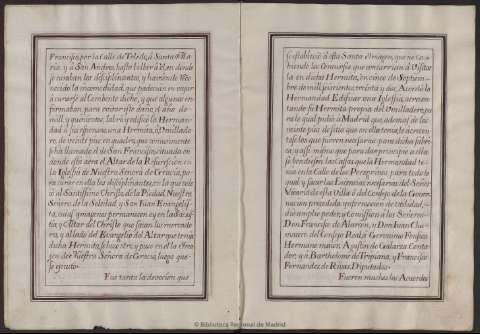 Francisco, por la Calle de Toledo, à Santa Ma-
ria, y à San Andres, hasta bolber à 
se curaban los disciplinantes, y haviendo reco-
nocido la incomodidad, que padecian en viajar
à curarse al Combento dicho, y que algunos en-
fermaban, para evitar este daño, el año de
mill, y quinientos, labrò y edificò la Herman-
dad à sus espensas, una Hermita, ò Humillade-
ro, de veinte pies en quadro, que comunmente
fuè llamado el de San Francisco, situada en
donde està aora el Altar de la Resureccion, en
la Iglesia de Nuestra Senora de Gracia, pa-
ra curar en ella los disciplinantes, en la que pusie-
ron el Santissimo Christo de la Piedad, Nuestra
Señora de la Soledad, y San Juan Evangelis-
ta, cuias ymagenes permanecen oy en la Sacris-
tia, y Altar del Christo, que sacan las
y al lado del Evangelio del Altar que tenia
dicha Hermita, se hizo otro, y puso en el la Yma-
gen de Nuestra Señora de Gracia, luego que
se ejecuto.
Fuè tanta la devocion, que
se estableciò à esta Santa Ymagen, que no ca-
biendo los Concursos que concurrian à Visitar-
la en dicha Hermita, en cinco de Septiem-
bre de mill quinientos treinta y dos, Acordò la
Hermandad Edificar una Iglesia,
tando su Hermita propia del Humilladero, pa-
ra lo qual pidiò à Madrid que, ademas de los
veinte pies de sitio que en ella tenia, le acrecen-
tase los que fueren necesarios para dicha fabri-
ca, y assi mismo que para dar principio à ella
se bendiesen las Casas, que la Hermandad te-
nia en la Calle de los Peregrinos, para todo lo
qual, y sacar las Licencias necesarias del Señor
Vicario de esta Villa, ò del Consejo de la Gover-
nacion, precedida ynformacion de utilidad,
diò amplio poder, y Comission à los Señores
Don Francisco de Alarcon, y Don Juan Chu-
macero del Consejo Real, à Geronimo
Hermano maior, Agustin de Galarza Conta-
dor, y à Bartholome de Tripiana, y Francisco
Fernandez de Rivas, Diputados.
Fueron muchos los Acuerdos
© Biblioteca Regional de Madrid